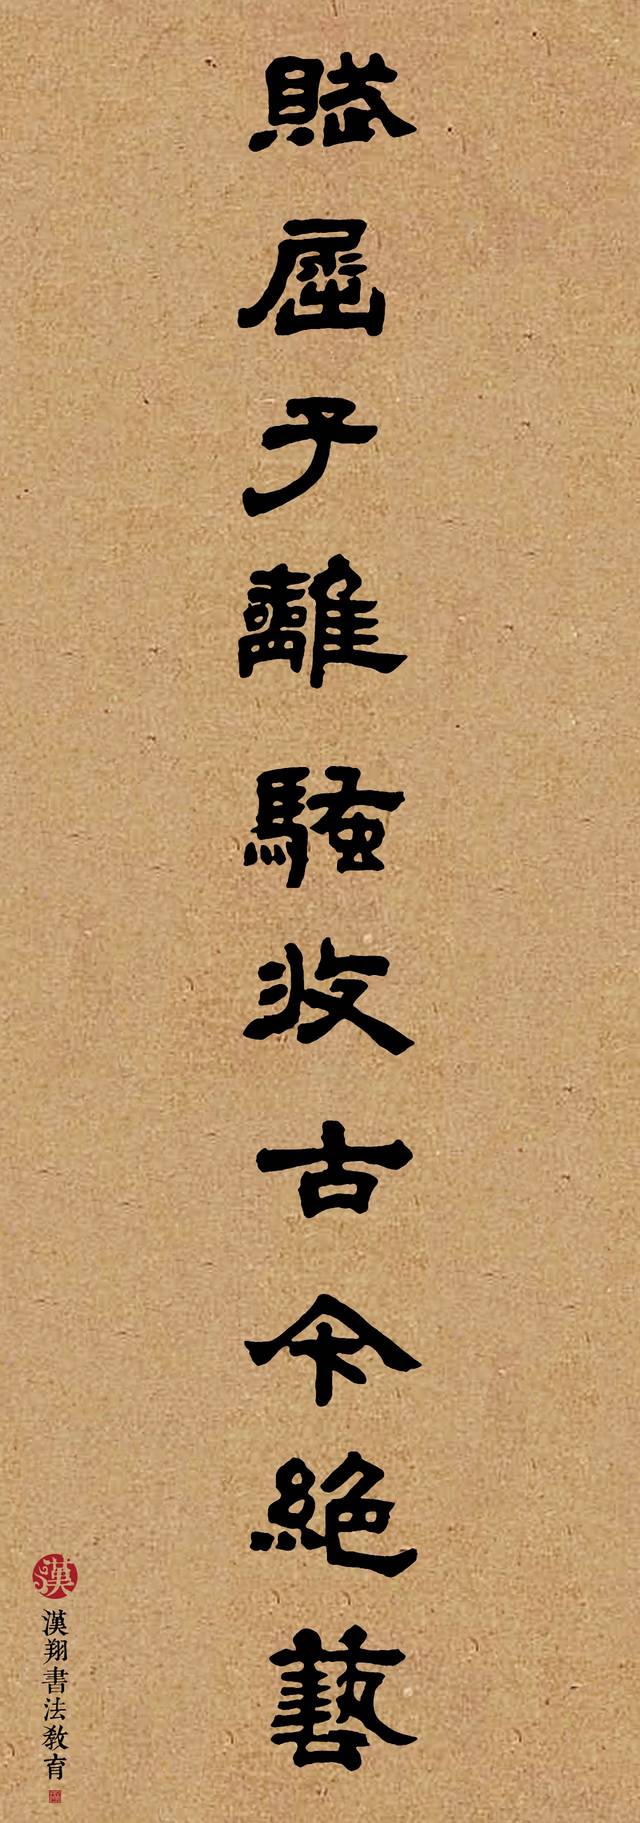 賦屈子離騷收古今絕藝
漢
漢翔書法教育